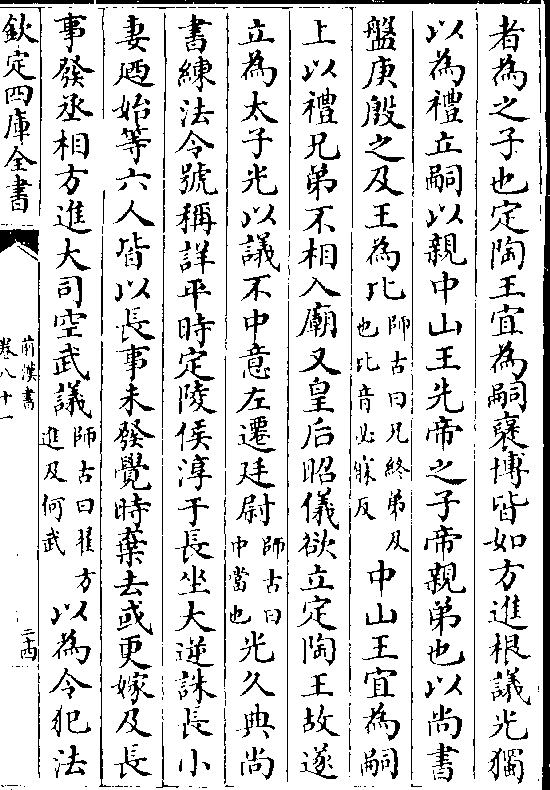 者為之子也定陶王宜為嗣襃博皆如方進根議光獨
以為禮立嗣以親中山王先帝之子帝親弟也以尚書
盤庚殷之及王為比師古曰兄終弟及也比音必寐反中山王宜為嗣
上以禮兄弟不相入廟又皇后昭儀欲立定陶王故遂
立為太子光以議不中意左遷廷尉師古曰中當也光久典尚
書練法令號稱詳平時定陵侯淳于長坐大逆誅長小
妻迺始等六人皆以長事未發覺時棄去或更嫁及長
事發丞相方進大司空武議師古曰翟方進及何武以為令犯法
欽定四庫全書
前漢書
卷八十一
二十四